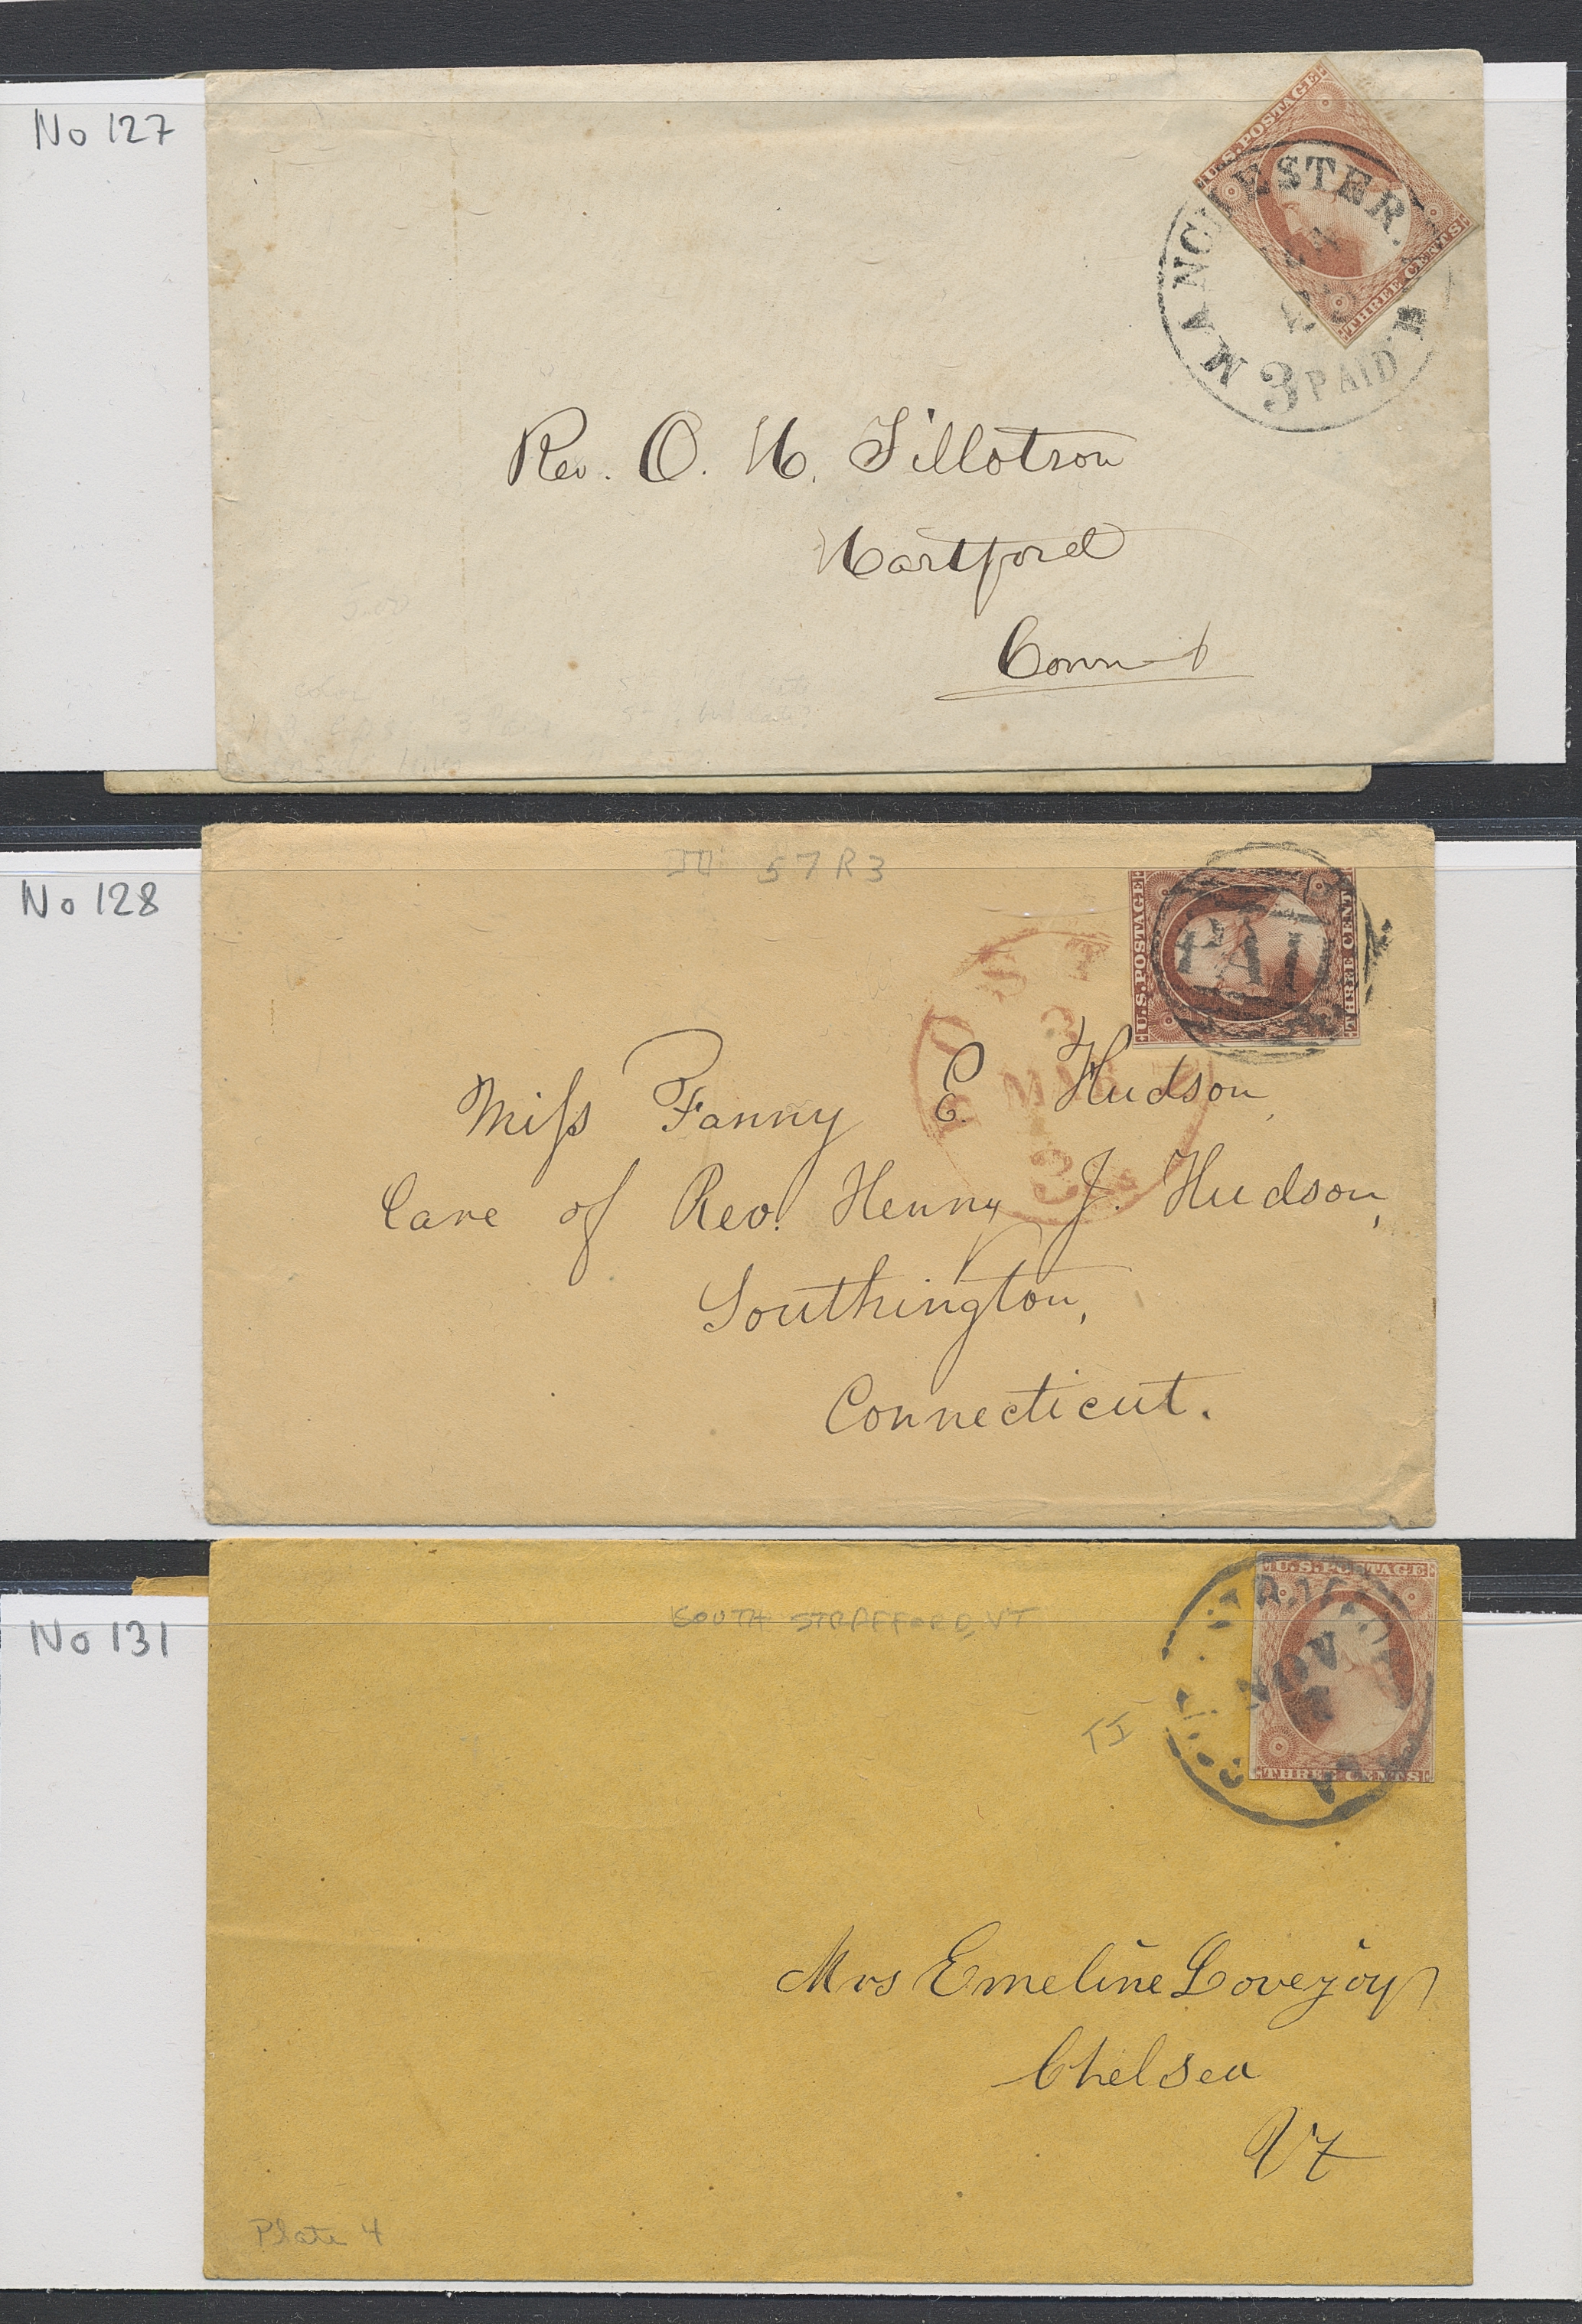 No 127
U.S. POSTAGE
THREE CENTS
MANCHESTER.
3 PAID
Rev. O. H. Tillotson
Hartford
Conn-t
No 128
III 57R3
U.S. POSTAGE
THREE CENT
PAI
MAR
3
Miss Fanny E. Hudson,
Care of Rev. Henry J. Hudson,
Southington,
Connecticut.
No 131
SOUTH STRAFFORD, VT
U.S. POSTAGE
THREE CENTS
NOV
Mrs Emeline Lovejoy
Chelsea
Vt
Plate 4